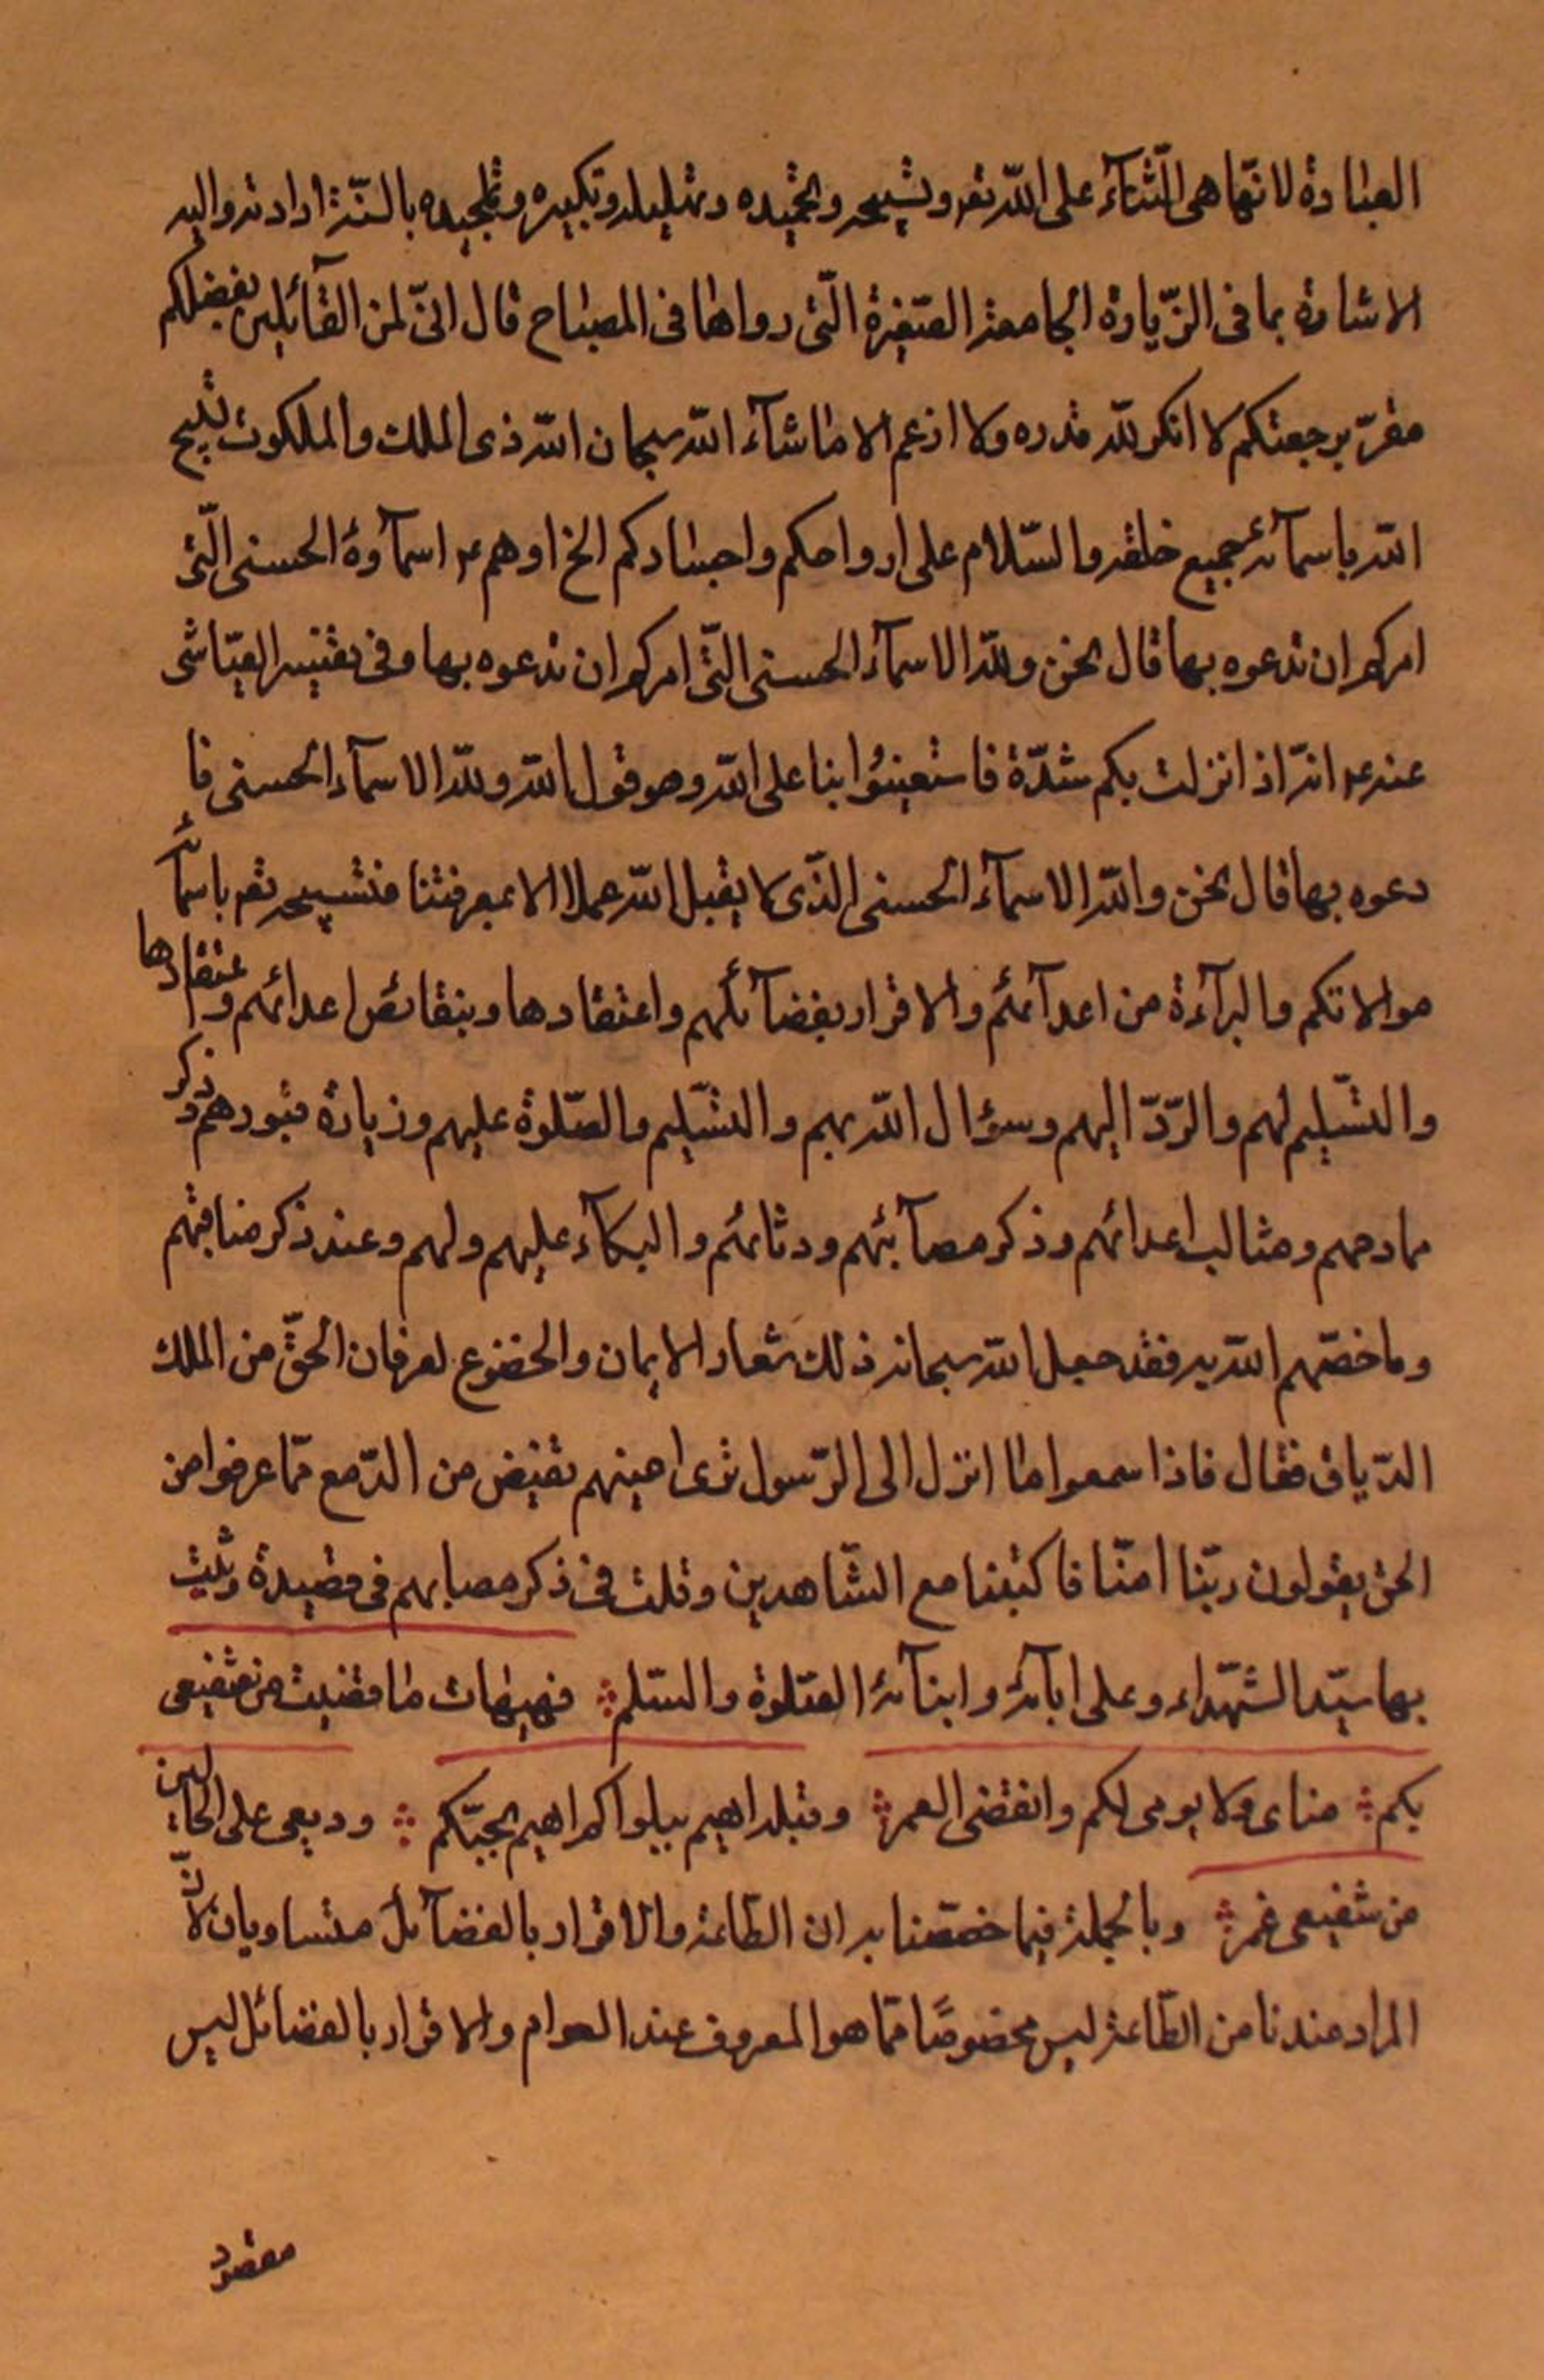 العبادة لانّها هى الثّناۤء على اللّه تعه وتسبيحه وتحميده وتهليله وتكبيره وتمجيده بالسنة ارادته واليه
الاشارة بما فى الزّيارة الجامعة الصّغيرة الّتى رواها فى المصباح قال انّى لمن القاۤئلين بفضلكم
مقرّ برجعتكم لا انكر للّه قدره ولا ازعم الا ما شاۤء اللّه سبحان اللّه ذى الملك والملكوت يسبح
اللّه باسماۤئه جميع خلقه والسّلام على ارواحكم واجسادكم الخ اوهم ع اسماۤؤه الحسنى الّتى
امركم ان تدعوه بها قال نحن وللّه الاسماۤء الحسنى الّتى امركم ان تدعوه بها وفى تفسير العيّاشى
عنه ع انّه اذا نزلت بكم شدّة فاستعينوُا بنا على اللّه وهو قول اللّه وللّه الاسماۤء الحسنى فا
دعوه بها قال نحن واللّه الاسماۤء الحسنى الذّى لا يقبل اللّه عملا الا بمعرفتنا فتسبيحه تعه باسماۤئه
موالاتكم والبراۤءة من اعداۤئهم والاقرار بفضاۤئلهم واعتقادها وبنقائص اعدائهم واعتقادها
والتسّليم لهم والرّدّ اليهم وسؤال اللّه بهم والتسّليم والصّلوة عليهم وزيارة قبورهم وذكر
مادحهم ومثالب اعدائهم وذكر مصاۤئبهم ورثائهم والبكاۤء عليهم ولهم وعند ذكر مناقبهم
وما خصّهم اللّه به فقد جعل اللّه سبحانه ذلك شعار الايمان والخضوع لعرفان الحقّ من الملك
الدّيان فقال فاذا سمعوا ما انزل الى الرّسول ترى اعينهم تفيض من الدّمع ممّا عرفوا من
الحق يقولون ربّنا امنّا فاكتبنا مع الشّاهدين وقلت فى ذكر مصابهم فى قصيدة رثيت
بها سيّد الشهّداء وعلى اباۤئه وابناۤئه الصّلوة والسّلم فهيهات ما قضيت من تفجعى
بكم مناى ولا يومى لكم وانقضى العمر وقبله اهيم ببلواكم اهيم بحبّكم ودمعى على الحالين
من تفجعى غمر وبالجملة فيما خصصنا به ان الطّاعة والاقرار بالفضاۤئل متساويان لانّ
المراد عندنا من الطّاعة ليس مخصوصًا ممّا هو المعروف عند العوام والاقرار بالفضائل ليس